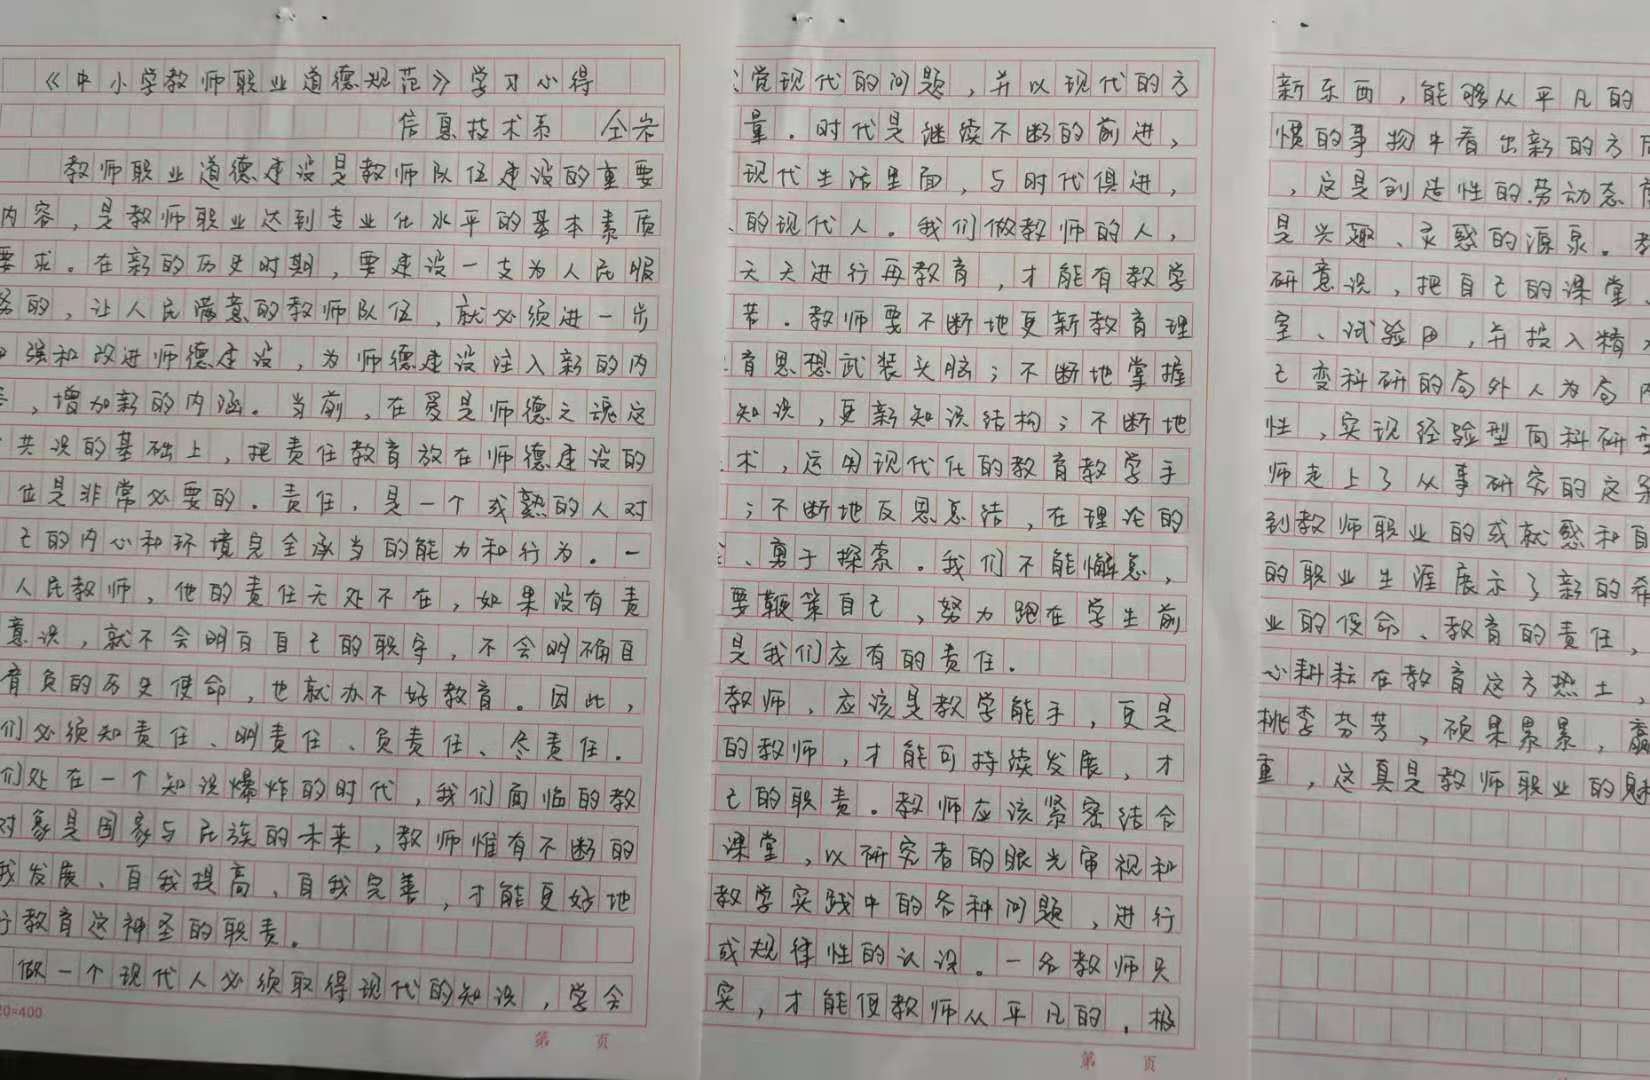 《中小学教师职业道德规范》学习心得
信息技术系 仝岩
教师职业道德建设是教师队伍建设的重要
内容，是教师职业达到专业化水平的基本素质
要求。在新的历史时期，要建设一支为人民服
务的，让人民满意的教师队伍，就必须进一步
强和改进师德建设，为师德建设注入新的内
，增加新的内涵。当前，在爱是师德之魂这
共识的基础上，把责任教育放在师德建设的
位是非常必要的。责任，是一个成熟的人对
己的内心和环境完全承当的能力和行为。一
人民教师，他的责任无处不在，如果没有责
意识，就不会明白自己的职守，不会明确自
肩负的历史使命，也就办不好教育。因此，
们必须知责任、明责任、负责任、尽责任。
们处在一个知识爆炸的时代，我们面临的教
对象是国家与民族的未来，教师惟有不断的
我发展、自我提高、自我完善，才能更好地
行教育这神圣的职责。
做一个现代人必须取得现代的知识，学会
20=400
第 页
觉现代的问题，并以现代的方
量。时代是继续不断的前进，
现代生活里面，与时代俱进，
的现代人。我们做教师的人，
天天进行再教育，才能有教学
苦。教师要不断地更新教育理
育思想武装头脑；不断地掌握
知识，更新知识结构；不断地
术，运用现代化的教育教学手
；不断地反思总结，在理论的
、勇于探索。我们不能懈怠，
要鞭策自己，努力跑在学生前
是我们应有的责任。
教师，应该是教学能手，更是
的教师，才能可持续发展，才
己的职责。教师应该紧密结合
课堂，以研究者的眼光审视和
教学实践中的各种问题，进行
成规律性的认识。一名教师只
实，才能使教师从平凡的，极
第 页
新东西，能够从平凡的
惯的事物中看出新的方
，这是创造性的劳动态
是兴趣、灵感的源泉。
研意识，把自己的课堂
室、试验田，并投入精
己变科研的局外人为局
性，实现经验型向科研型
师走上了从事研究的这条
到教师职业的成就感和自
的职业生涯展示了新的希
业的使命、教育的责任，
心耕耘在教育这方热土，
桃李芬芳，硕果累累，赢
重，这真是教师职业的魅